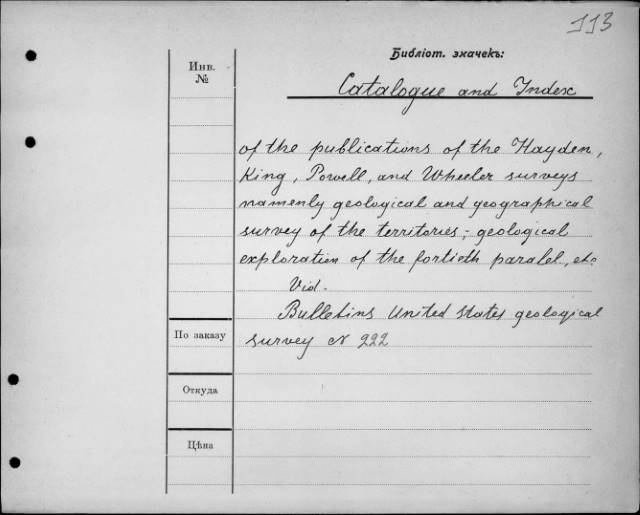 113
Библіот. значекъ:
Инв.
№
Catalogue and Index
of the publications of the Hayden,
King, Powell, and Wheeler surveys
namenly geological and geographical
survey of the territories; geological
exploration of the fortieth paralel, etc
Vid.
Bulletins United States geological
По заказу
survey N 222
Откуда
Цѣна